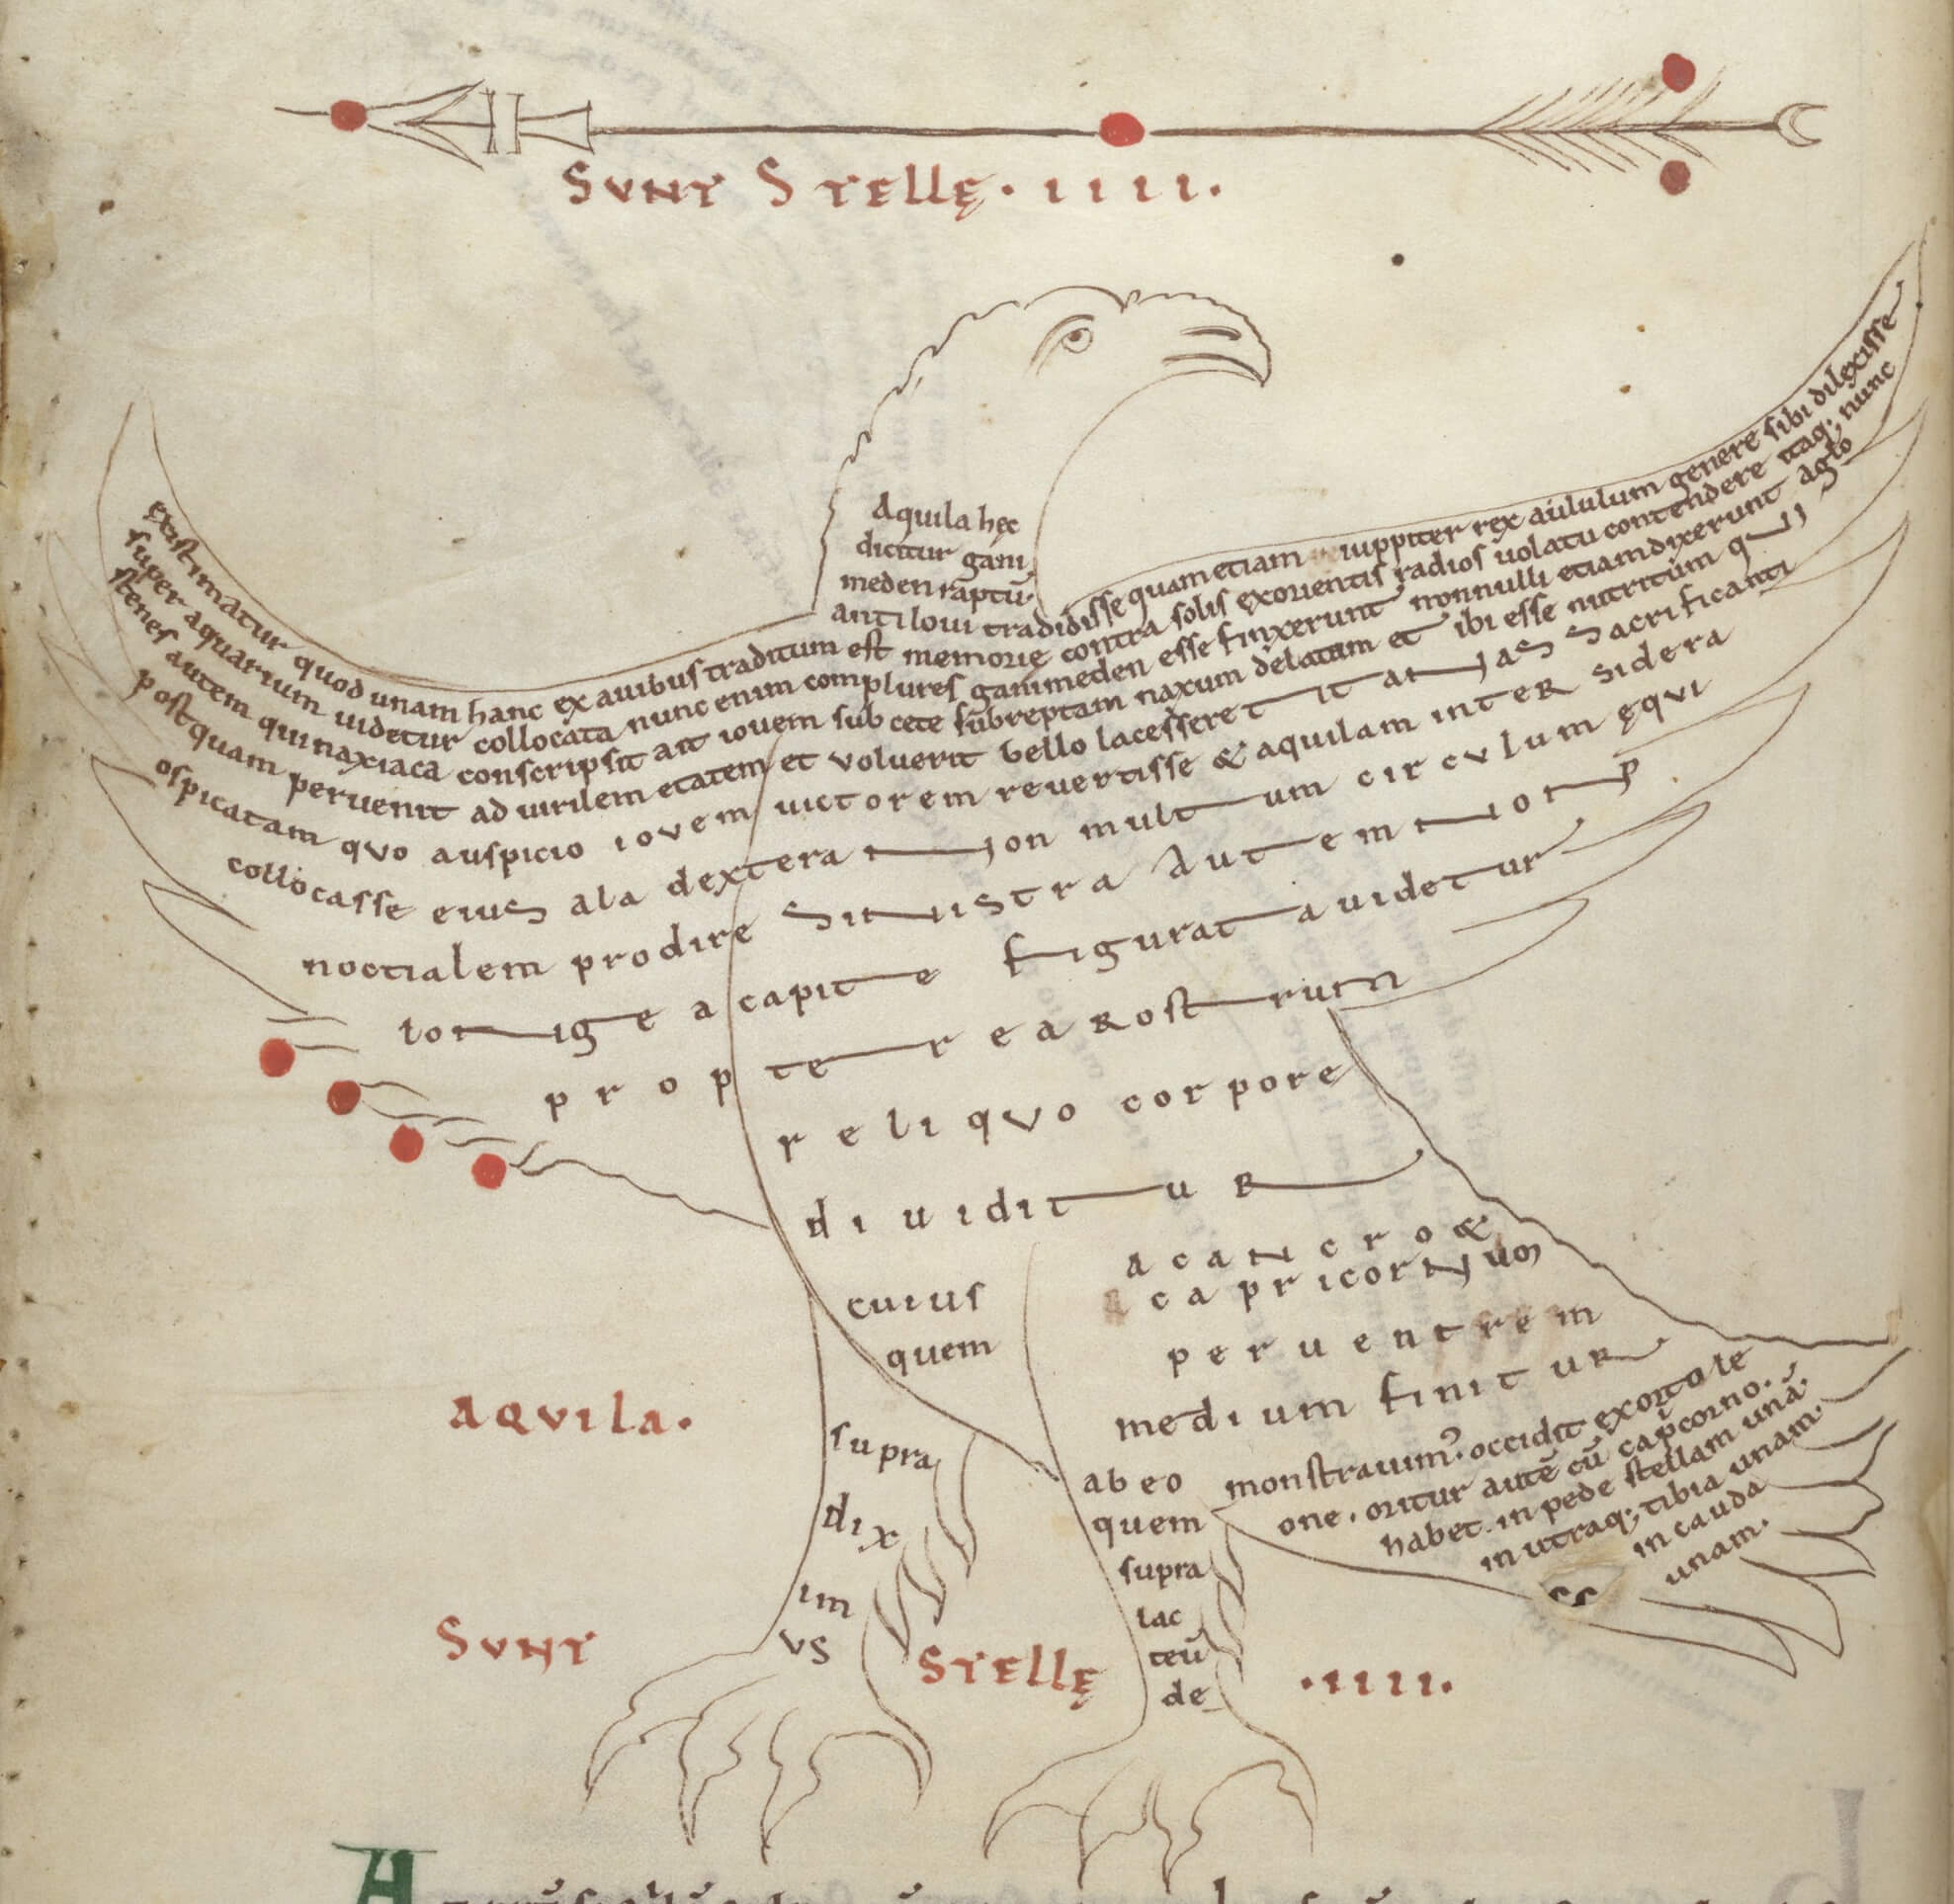 SUNT STELLĘ · IIII ·
Aquila hęc
dicitur gani
meden raptū
anti Ioui tradidisse quam etiam iuppiter rex genere sibi dilexisse
existimatur quod unam hanc ex auibus traditum est memorie contra solis exorientis radios uolatu contendere itaq; nunc
super aquarium uidetur collocata nunc enim complures ganimeden esse finxerunt nonnulli etiam dixerunt aglo
stenes autem qui naxiaca conscripsit ait iouem sub cete subreptam naxum delatum et ibi esse nutritum
postquam peruenit ad uirilem etatem et voluerit bello lacessere titanas Sacrificanti
ospicatam quo auspicio iovem uictorem reuertisse & aquilam inter sidera
collocasse eius ala dextera non multum circulum ęqui
noctialem prodire Sinistra Autem non p
longe a capite figurata uidetur
propterea rostrum
reliquo corpore
diuiditur
cuius
quem
supra
dix
im
us
acancro &
a capricornum
per uentrem
medium finitur
ab eo
quem
supra
lac
teū
de
monstrauim᾽· occidit exorto le
one · oritur autē cū cap̄corno ·
habet in pede stellam unā·
in utraq; tibia unam·
in cauda
unam·
AQUILA ·
SUNT STELLĘ · IIII ·